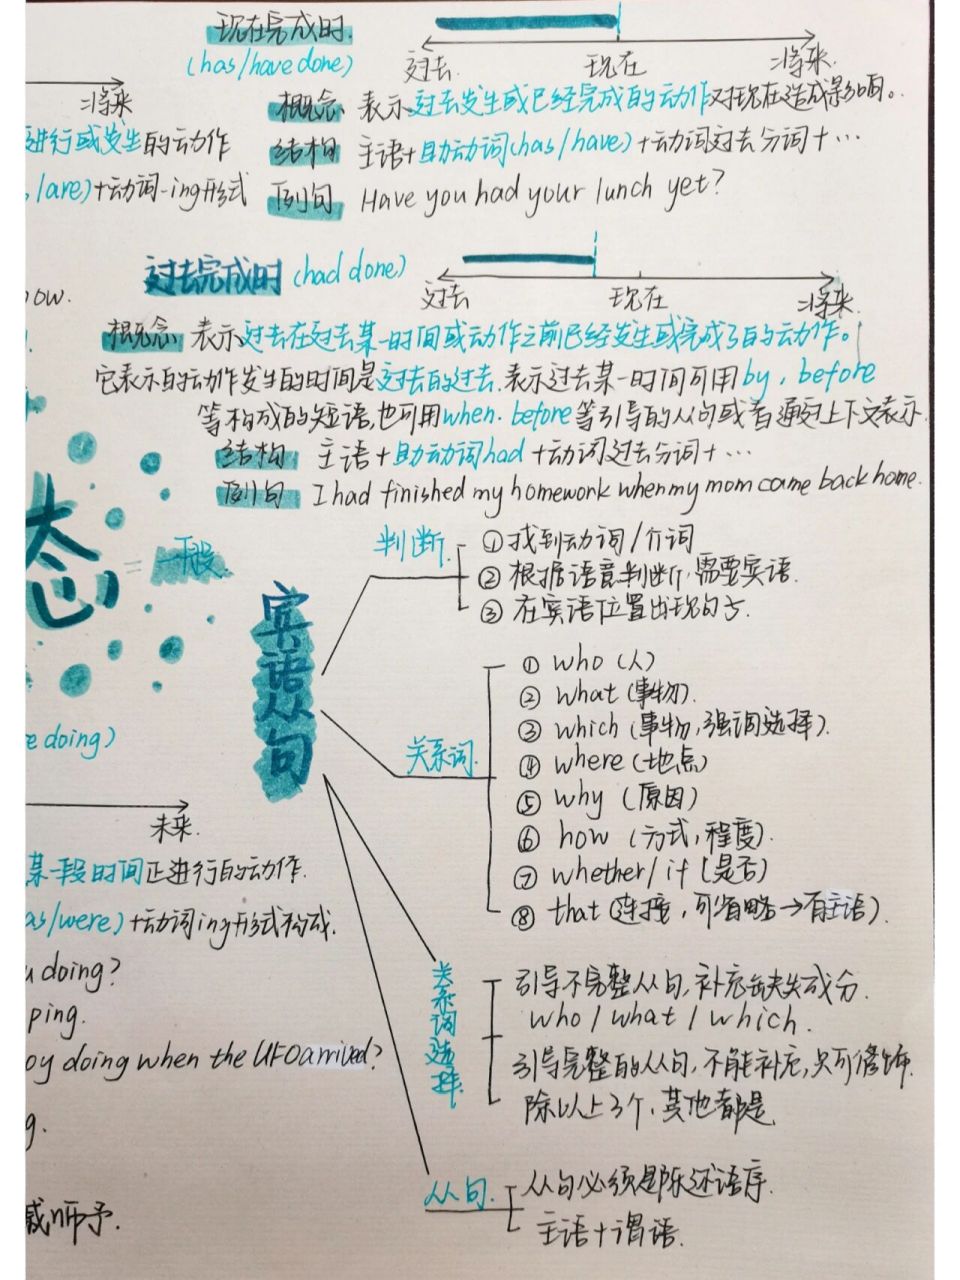 现在完成时.
(has/have done)
过去. 现在 将来.
概念 表示过去发生或已经完成的动作对现在造成影响。
结构 主语+助动词(has/have)+动词过去分词+…
例句 Have you had your lunch yet?
将来
进行或发生的动作
/are)+动词-ing形式
过去完成时 (had done)
过去 现在 将来.
ow.
概念 表示过去在过去某一时间或动作之前已经发生或完成了的动作。
它表示的动作发生的时间是过去的过去.表示过去某一时间可用by, before
等构成的短语,也可用when. before等引导的从句或者通过上下文表示.
结构 主语+助动词had+动词过去分词+…
例句 I had finished my homework when my mom came back home.
态
=一般
e doing)
未来.
某一段时间正进行的动作.
as/were)+动词ing形式构成.
u doing?
ping.
oy doing when the UFO arrived?
g.
宾语从句
判断
① 找到动词/介词
② 根据语意判断,需要宾语.
③ 在宾语位置出现句子.
关系词
① who (人)
② what (事物).
③ which (事物,强调选择).
④ where (地点)
⑤ why (原因)
⑥ how (方式,程度).
⑦ whether/if (是否)
⑧ that (连接,可省略→有主语).
关系词选择
引导不完整从句,补充缺失成分.
who / what / which.
引导完整的从句,不能补充,只可修饰.
除以上3个,其他都是.
从句.
从句必须是陈述语序.
主语+谓语.